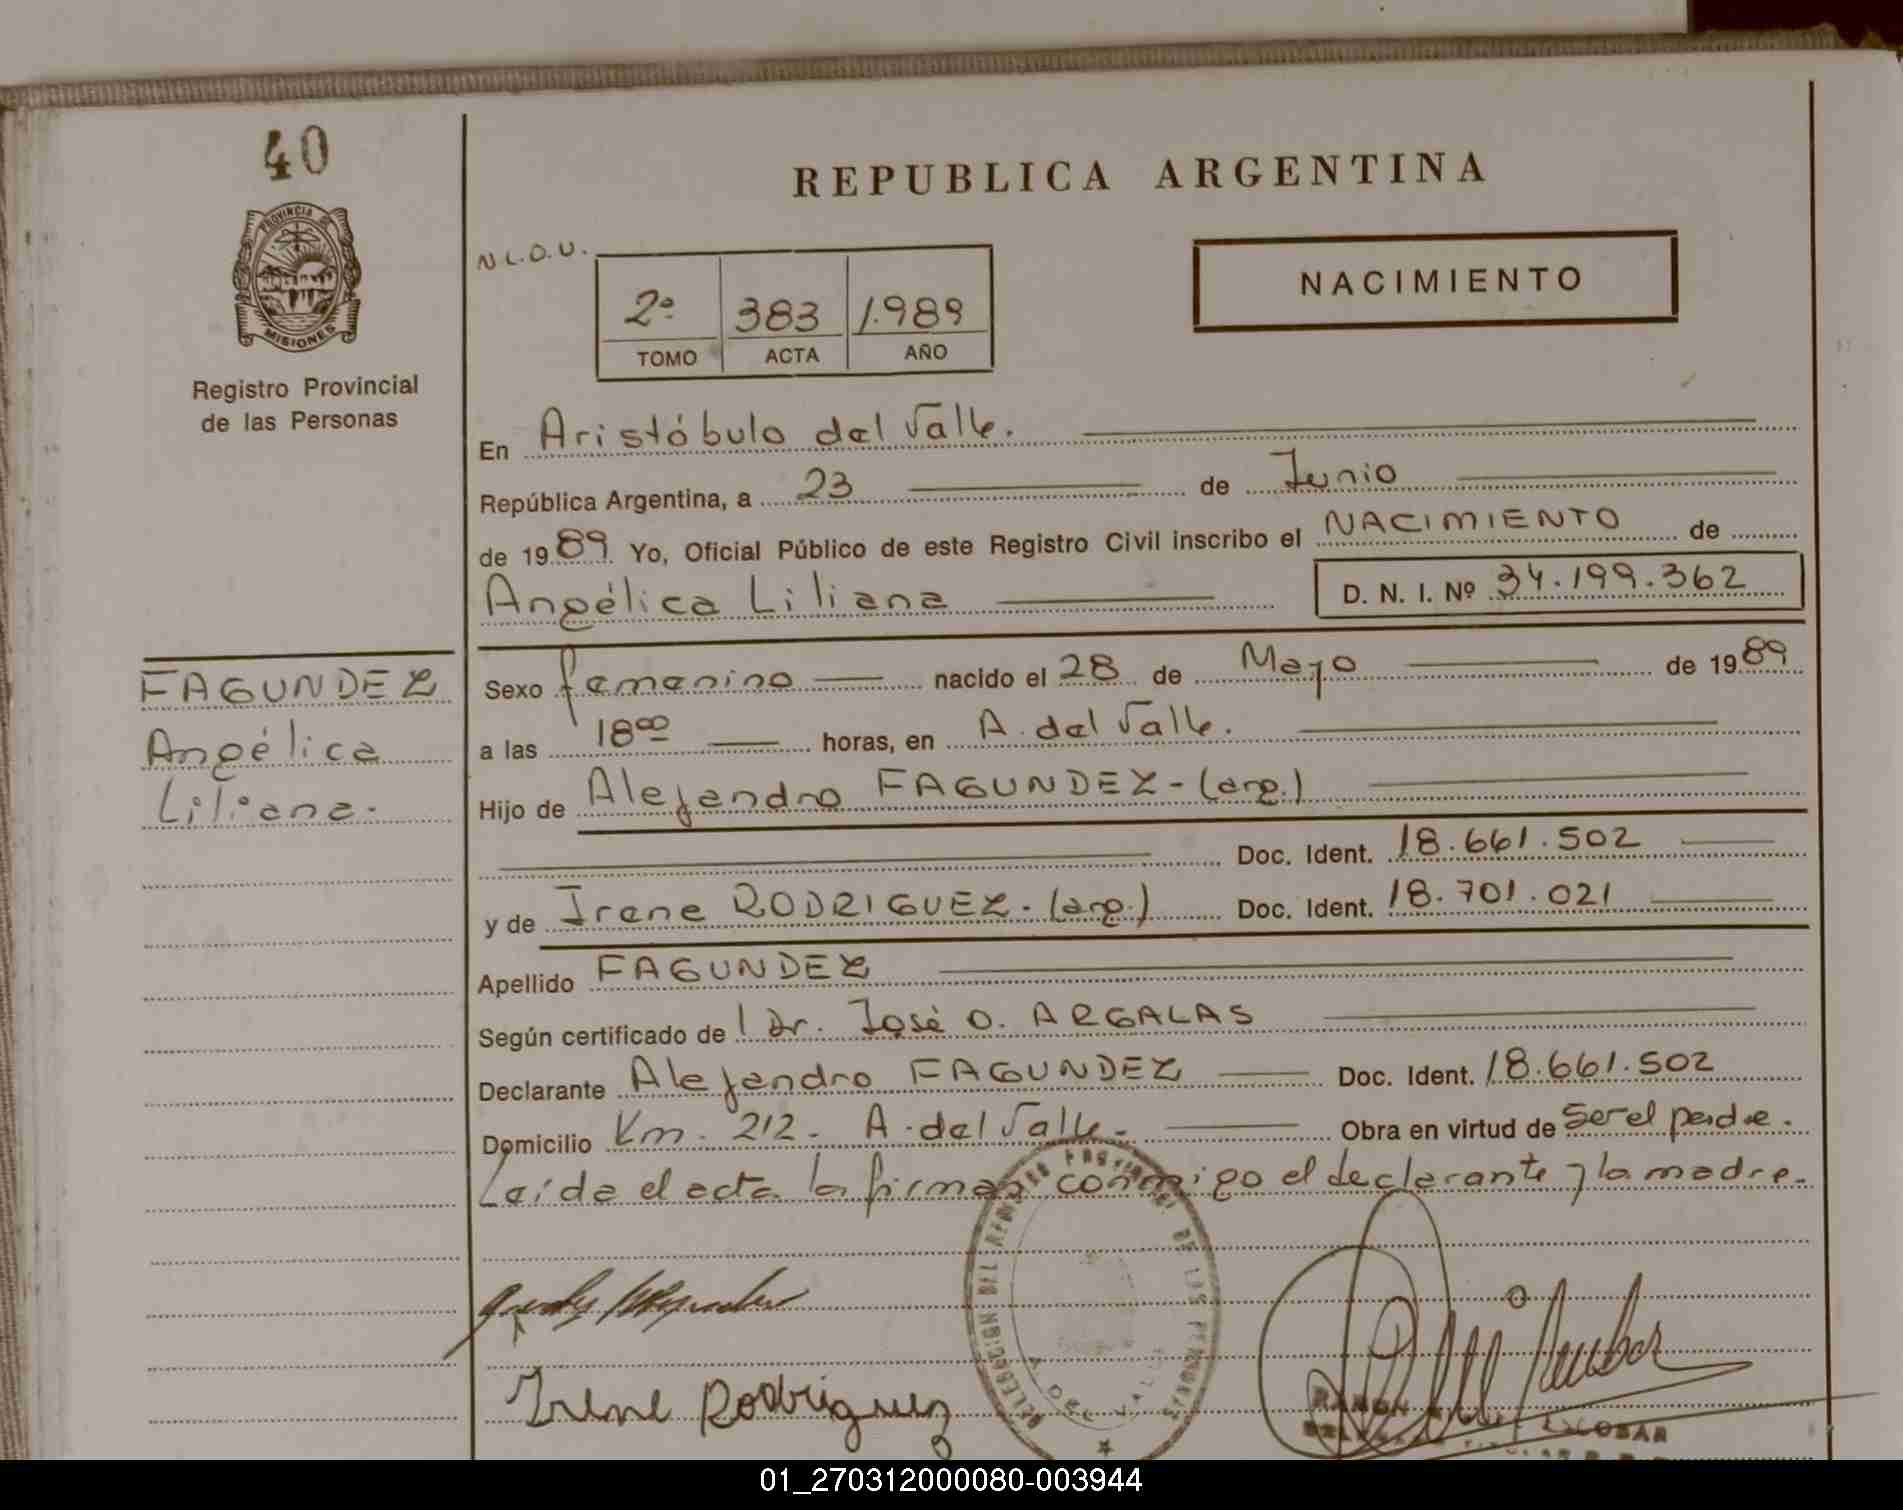 40
REPUBLICA ARGENTINA
PROVINCIA DE
MISIONES
Registro Provincial
de las Personas
N L.O.U.
2º 383 1.989
TOMO ACTA AÑO
NACIMIENTO
En Aristóbulo del Valle.
República Argentina, a 23 de Junio
de 1989 Yo, Oficial Público de este Registro Civil inscribo el NACIMIENTO de
Angélica Liliana D. N. I. Nº 34.199.362
FAGUNDEZ
Angélica
Liliana.
Sexo femenino nacido el 28 de Mayo de 1989
a las 18ºº horas, en A. del Valle.
Hijo de Alejandro FAGUNDEZ - (arg.)
Doc. Ident. 18.661.502
y de Irene RODRIGUEZ. (arg.) Doc. Ident. 18.701.021
Apellido FAGUNDEZ
Según certificado de l Dr. José O. ARGALAS
Declarante Alejandro FAGUNDEZ Doc. Ident. 18.661.502
Domicilio Km. 212. A. del Valle. Obra en virtud de ser el padre.
Leída el acta la firman conmigo el declarante y la madre.
DELEGACION DEL REGISTRO PROVINCIAL DE LAS PERSONAS
A. DEL VALLE
Irene Rodriguez
RAMON ESCOBAR
01_270312000080-003944